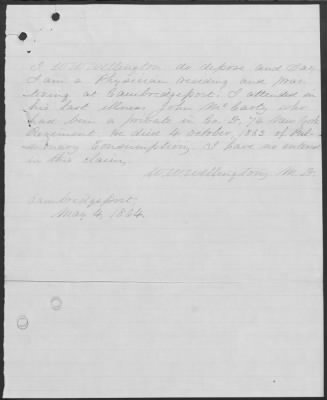 I W W Wellington do depose and say
I am a Physician residing and prac
ticing at Cambridgeport. I attended in
his last illness John McCarty who
had been a private in Co. D. 7th New York
Regiment. He died 4 October, 1863 of Pul
monary Consumption. I have no interest
in this claim.
W. W. Wellington, M. D.
Cambridgeport,
May 4, 1864.